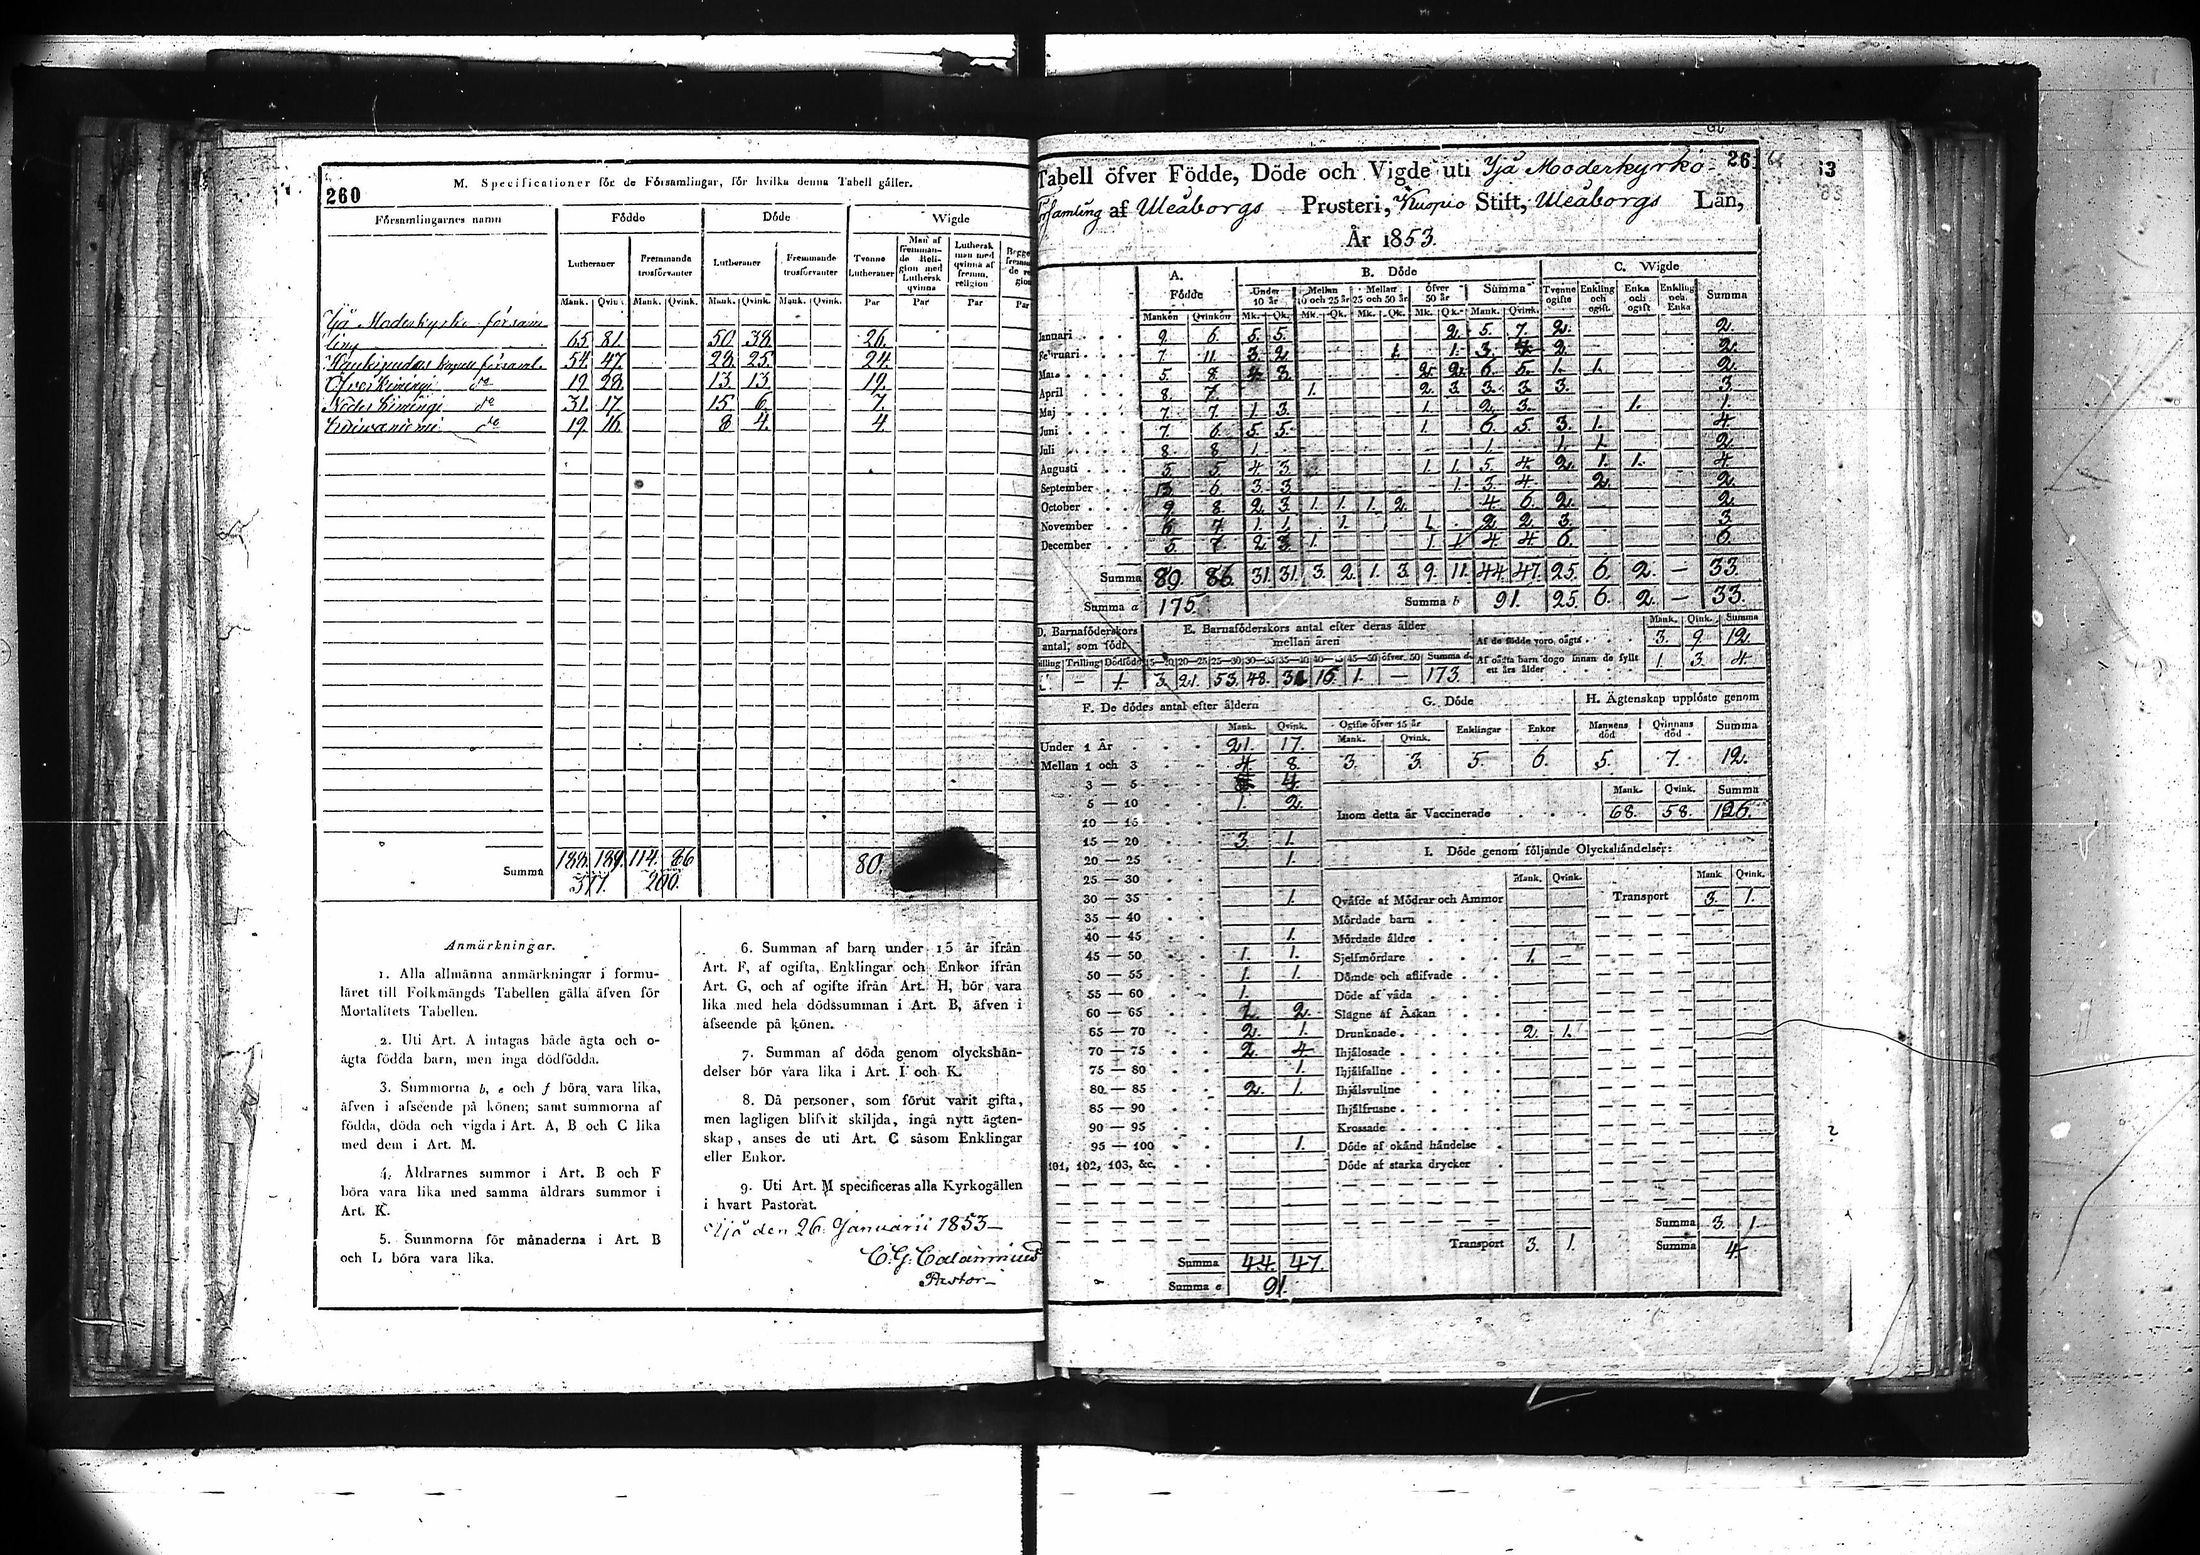 260
M. Specificationer för de Församlingar, för hvilka denna Tabell gäller.
Församlingarnes namn Födde Döde Wigde
Lutheraner Fremmande trosförvanter Lutheraner Fremmande trosförvanter Tvenne Lutheraner Man af fremmande Religion med Luthersk qvinna Luthersk man med qvinna af fremm. religion
Mank. Qvink. Mank. Qvink. Mank. Qvink. Mank. Qvink. Par Par Par Par
Ijå Moderkyrko församling 65. 81. 50. 38. 26.
Haukipudas Kapell församl. 54. 47. 28. 25. 24.
Öfver Kimingi do 19 28. 13. 13. 19.
Neder Kimingi do 31. 17. 15. 6. 7.
Kuivaniemi do 19 16. 8 4. 4.
Summa 188. 189. 114. 86 80.
377. 200.
Anmärkningar.
1. Alla allmänna anmärkningar i formu-
läret till Folkmängds Tabellen gälla äfven för
Mortalitets Tabellen.
2. Uti Art. A intagas både ägta och o-
ägta födda barn, men inga dödfödda.
3. Summorna b, e och f böra vara lika,
äfven i afseende på könen; samt summorna af
födda, döda och vigda i Art. A, B och C lika
med dem i Art. M.
4. Åldrarnes summor i Art. B och F
böra vara lika med samma åldrars summor i
Art. K.
5. Summorna för månaderna i Art. B
och L böra vara lika.
6. Summan af barn under 15 år ifrån
Art. F, af ogifta, Enklingar och Enkor ifrån
Art. G, och af ogifte ifrån Art. H, bör vara
lika med hela dödssumman i Art. B, äfven i
afseende på könen.
7. Summan af döda genom olyckshän-
delser bör vara lika i Art. I och K.
8. Då personer, som förut varit gifta,
men lagligen blifvit skiljda, ingå nytt ägten-
skap, anses de uti Art. C såsom Enklingar
eller Enkor.
9. Uti Art. M specificeras alla Kyrkogällen
i hvart Pastorat.
Ijå den 26. Januarii 1853
C. G. Calamnius
Pastor
261
Tabell öfver Födde, Döde och Vigde uti Ijå Moderkyrko
församling af Uleåborgs Prosteri, Kuopio Stift, Uleåborgs Län,
År 1853.
A. Födde B. Döde C. Wigde
Under 10 år Mellan 10 och 25 år Mellan 25 och 50 år öfver 50 år Summa Tvenne ogifte Enkling och ogift Enka och ogift Enkling och Enka Summa
Mankön Qvinkön Mk. Qk. Mk. Qk. Mk. Qk. Mk. Qk. Mank. Qvink.
Januari 9. 6. 5. 5. 2. 5. 7. 2. 2.
Februari 7. 11. 3. 2. 1. 1. 3. 2. 2.
Mars 5. 8. 4 3. 2. 2. 6. 5. 1. 1. 2.
April 8. 7. 1. 2. 3. 3. 3. 3. 3.
Maj 7. 7. 1. 3. 1. 2. 3. 1. 1.
Juni 7. 6. 5. 5. 1. 6. 5. 3. 1. 4.
Juli 8. 8. 1. 1. 1. 1. 2.
Augusti 5 5 4. 3 1. 1. 5. 4. 2. 1. 1. 4.
September 13. 6. 3. 3 1. 3. 4. 2. 2.
October 9. 8. 2. 3. 1. 1. 1. 2. 4. 6. 2. 2.
November 6. 7. 1. 1. 1. 1. 2. 2. 3. 3.
December 5. 7. 2. 3. 1. 1. 1. 4. 4. 6. 6.
Summa 89. 86. 31. 31. 3. 2. 1. 3. 9. 11. 44. 47. 25. 6. 2. — 33.
Summa a 175. Summa b 91. 25. 6. 2. — 33.
D. Barnaföderskors antal, som födt
Trilling Dödfödde
— 1.
E. Barnaföderskors antal efter deras ålder mellan åren
15—20 20—25 25—30 30—35 35—40 40—45 45—50 öfver 50 Summa d.
3. 21. 53. 48. 15. 1. — 173.
Mank. Qink. Summa
Af de födde voro oägta 3. 9. 12.
Af oägta barn dogo innan de fyllt ett års ålder 1. 3. 4.
F. De dödes antal efter åldern
Mank. Qvink.
Under 1 År 21. 17.
Mellan 1 och 3 4. 8.
3 — 5 4.
5 — 10 1. 2.
10 — 15
15 — 20 3. 1.
20 — 25 1.
25 — 30
30 — 35 1.
35 — 40
40 — 45 1.
45 — 50 1. 1.
50 — 55 1. 1.
55 — 60 1.
60 — 65 2.
65 — 70 2. 1.
70 — 75 2. 4
75 — 80 1.
80 — 85 2. 1.
85 — 90
90 — 95
95 — 100 1.
101, 102, 103, &c.
Summa 44. 47.
Summa e 91.
G. Döde
Ogifte öfver 15 år Enklingar Enkor
Mank. Qvink.
3. 3. 5. 6.
H. Ägtenskap upplöste genom
Mannens död Qvinnans död Summa
5. 7. 12.
Mank. Qvink. Summa
Inom detta år Vaccinerade 68. 58. 126.
I. Döde genom följande Olyckshändelser:
Mank. Qvink. Mank. Qvink.
Qväfde af Mödrar och Ammor Transport 3. 1.
Mördade barn
Mördade äldre
Sjelfmördare 1. —
Dömde och aflifvade
Döde af våda
Slagne af Åskan
Drunknade 2. 1.
Ihjälosade
Ihjälfallne
Ihjälsvultne
Ihjälfrusne
Krossade
Döde af okänd händelse
Döde af starka drycker
Summa 3. 1.
Transport 3. 1. Summa 4